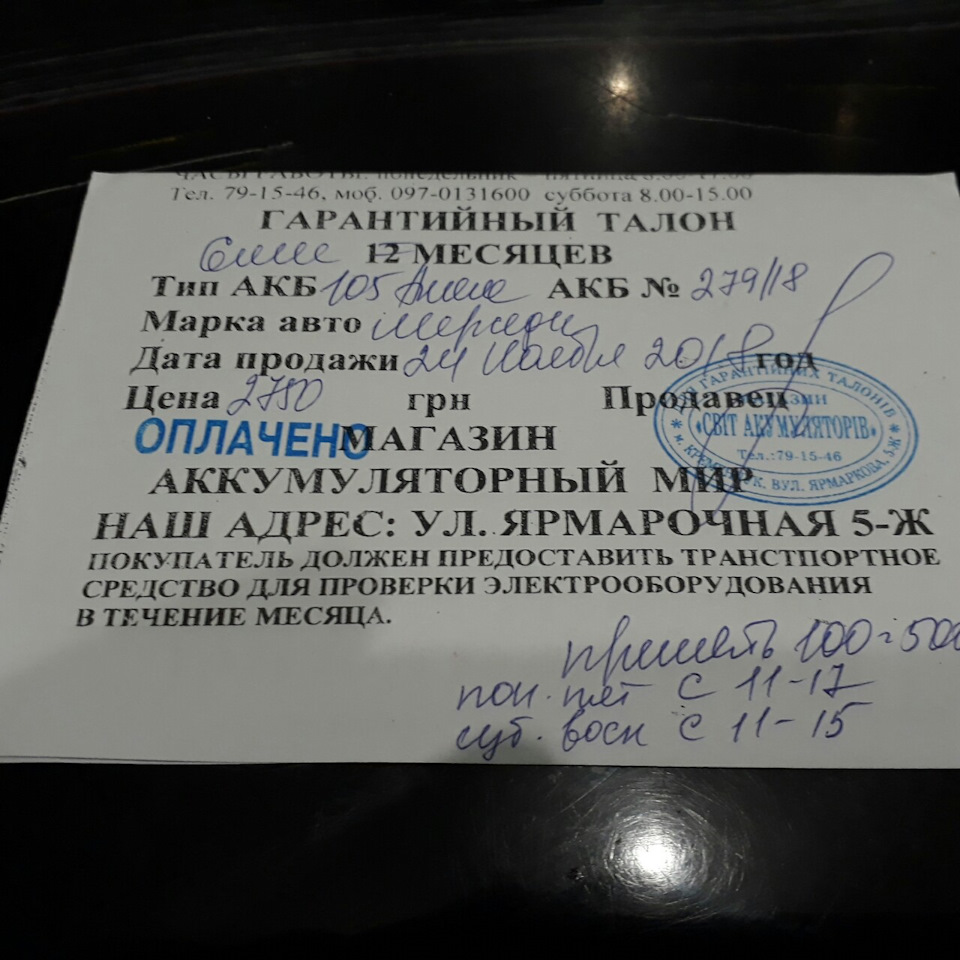 ЧАСЫ РАБОТЫ: понедельник - пятница 8.00-17.00
Тел. 79-15-46, моб. 097-0131600 суббота 8.00-15.00
ГАРАНТИЙНЫЙ ТАЛОН
12 МЕСЯЦЕВ
Тип АКБ 105 АКБ № 279/18
Марка авто Мерседес
Дата продажи 24 Ноября 2018 год
Цена 2750 грн Продавец
ОПЛАЧЕНО МАГАЗИН
АККУМУЛЯТОРНЫЙ МИР
НАШ АДРЕС: УЛ. ЯРМАРОЧНАЯ 5-Ж
ПОКУПАТЕЛЬ ДОЛЖЕН ПРЕДОСТАВИТЬ ТРАНСТПОРТНОЕ
СРЕДСТВО ДЛЯ ПРОВЕРКИ ЭЛЕКТРООБОРУДОВАНИЯ
В ТЕЧЕНИЕ МЕСЯЦА.
ГАРАНТІЙНИХ ТАЛОНІВ
МАГАЗИН
«СВІТ АКУМУЛЯТОРІВ»
Тел.:79-15-46
м. КРЕМЕНЧУК, ВУЛ. ЯРМАРКОВА, 5-Ж
принять 100=500
пон. пят с 11-17
суб. воск с 11-15